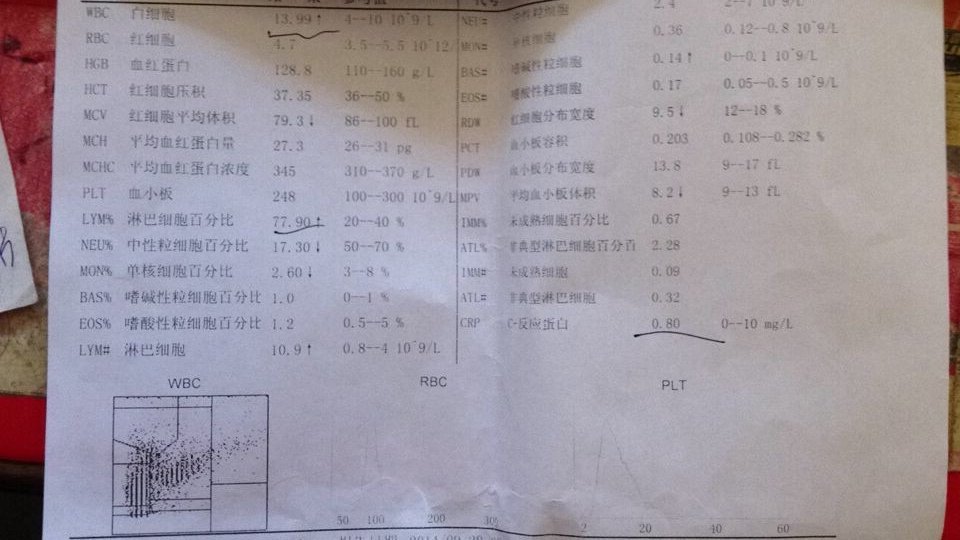 WBC 白细胞 13.99↑ 4--10 10^9/L
RBC 红细胞 4.7 3.5--5.5 10^12/
HGB 血红蛋白 128.8 110--160 g/L
HCT 红细胞压积 37.35 36--50 %
MCV 红细胞平均体积 79.3↓ 86--100 fL
MCH 平均血红蛋白量 27.3 26--31 pg
MCHC 平均血红蛋白浓度 345 310--370 g/L
PLT 血小板 248 100--300 10^9/L
LYM% 淋巴细胞百分比 77.90↑ 20--40 %
NEU% 中性粒细胞百分比 17.30↓ 50--70 %
MON% 单核细胞百分比 2.60↓ 3--8 %
BAS% 嗜碱性粒细胞百分比 1.0 0--1 %
EOS% 嗜酸性粒细胞百分比 1.2 0.5--5 %
LYM# 淋巴细胞 10.9↑ 0.8--4 10^9/L
代号
NEU# 中性粒细胞 2.4 2--7 10^9/L
MON# 单核细胞 0.36 0.12--0.8 10^9/L
BAS# 嗜碱性粒细胞 0.14↑ 0--0.1 10^9/L
EOS# 嗜酸性粒细胞 0.17 0.05--0.5 10^9/L
RDW 红细胞分布宽度 9.5↓ 12--18 %
PCT 血小板容积 0.203 0.108--0.282 %
PDW 血小板分布宽度 13.8 9--17 fL
MPV 平均血小板体积 8.2↓ 9--13 fL
IMM% 未成熟细胞百分比 0.67
ATL% 非典型淋巴细胞百分百 2.28
IMM# 未成熟细胞 0.09
ATL# 非典型淋巴细胞 0.32
CRP C-反应蛋白 0.80 0--10 mg/L
WBC RBC PLT
50 100 200 300 2 20 40 60